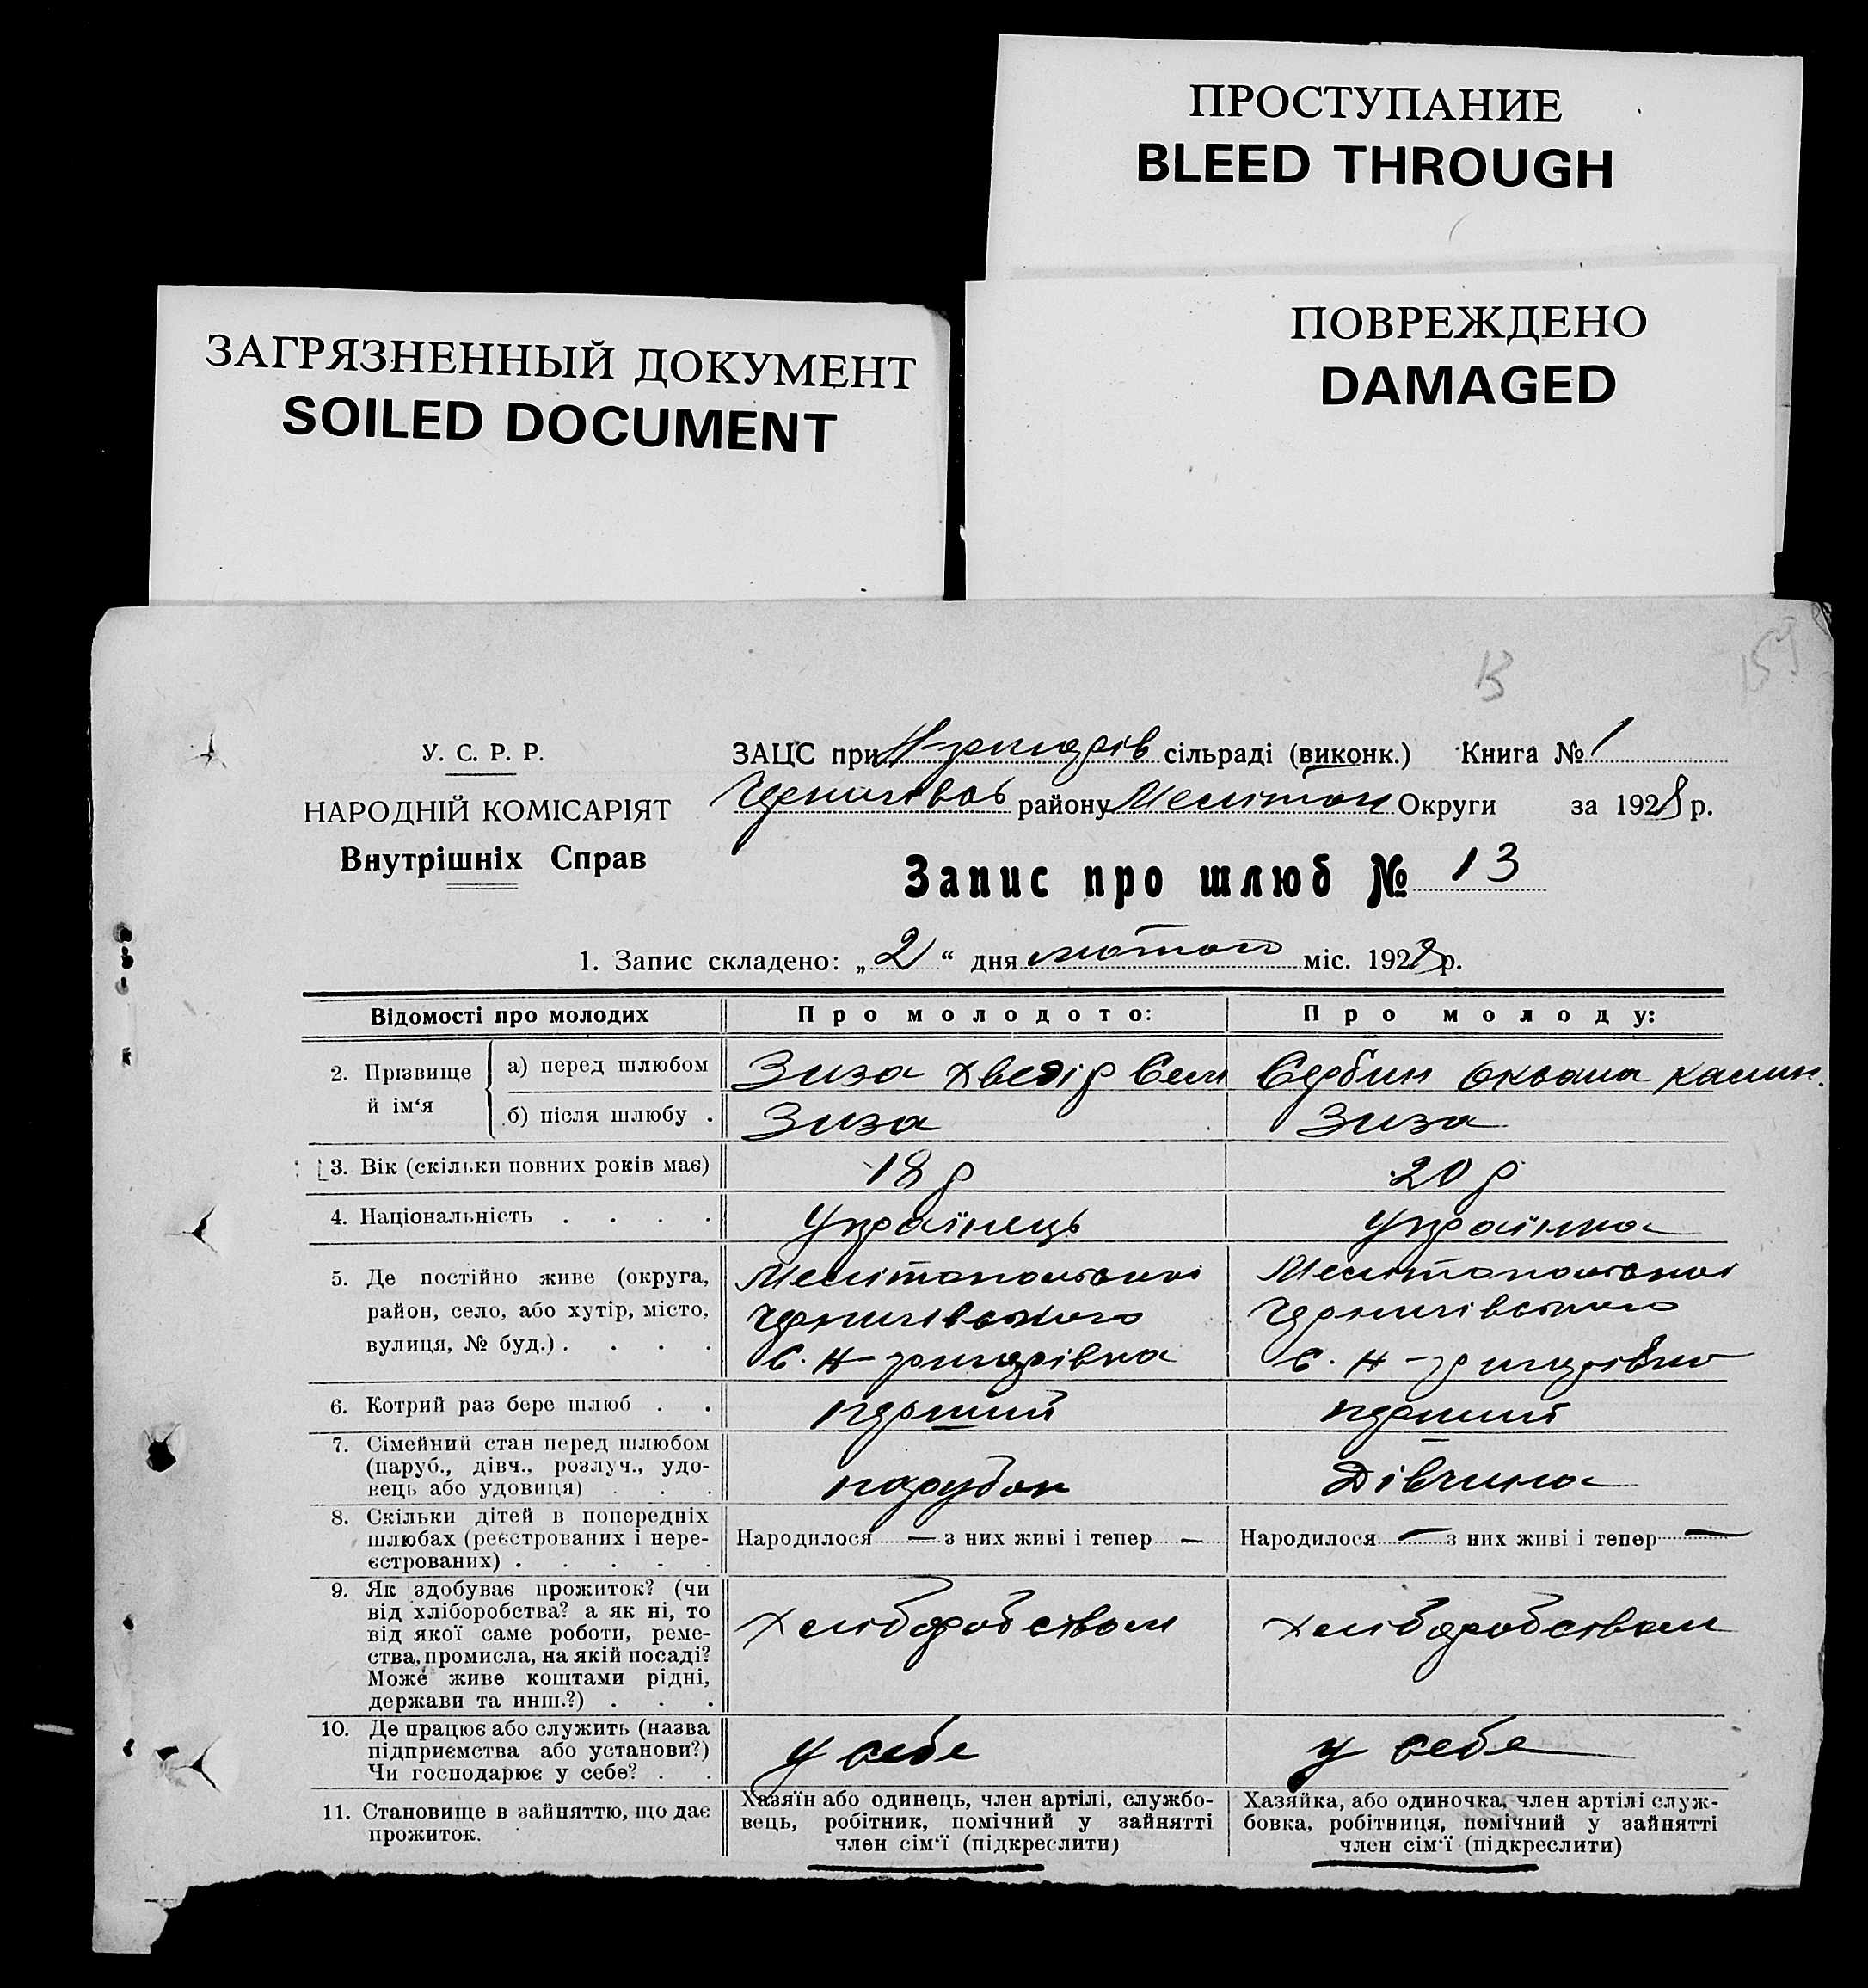 ПРОСТУПАНИЕ
BLEED THROUGH
ЗАГРЯЗНЕННЫЙ ДОКУМЕНТ
SOILED DOCUMENT
ПОВРЕЖДЕНО
DAMAGED
13
У. С. Р. Р.
НАРОДНІЙ КОМІСАРІЯТ
Внутрішніх Справ
ЗАЦС при сільраді (виконк.) Книга № 1
району Меліто Округи за 1928 р.
Запис про шлюб № 13
1. Запис складено: „2“ дня лютого міс. 1928 р.
Відомості про молодих Про молодого: Про молоду:
2. Прізвище й ім‘я а) перед шлюбом Зиза Хведір Сем Сербин Оксана Калин.
б) після шлюбу . Зиза Зиза
3. Вік (скільки повних років має) 18 р 20 р
4. Національність . . . . Українець Українка
5. Де постійно живе (округа, Мелітопольської Мелітопольської
район, село, або хутір, місто, Чернигівського Чернигівського
вулиця, № буд.) . . . . с. Н- с. Н-
6. Котрий раз бере шлюб . . перший перший
7. Сімейний стан перед шлюбом
(паруб., дівч., розлуч., удо-
вець або удовиця) . . . парубок Дівчина
8. Скільки дітей в попередніх
шлюбах (реєстрованих і нере- Народилося — з них живі і тепер — Народилося — з них живі і тепер —
єстрованих) . . . . .
9. Як здобуває прожиток? (чи
від хліборобства? а як ні, то
від якої саме роботи, реме- Хліборобством Хліборобством
ства, промисла, на якій посаді?
Може живе коштами рідні,
держави та инш.?) . . .
10. Де працює або служить (назва
підприємства або установи?) у себе у себе
Чи господарює у себе? . .
11. Становище в зайняттю, що дає
прожиток.
Хазяїн або одинець, член артілі, службо-
вець, робітник, помічний у зайнятті
член сім‘ї (підкреслити)
Хазяйка, або одиночка, член артілі служ-
бовка, робітниця, помічний у зайнятті
член сім‘ї (підкреслити)